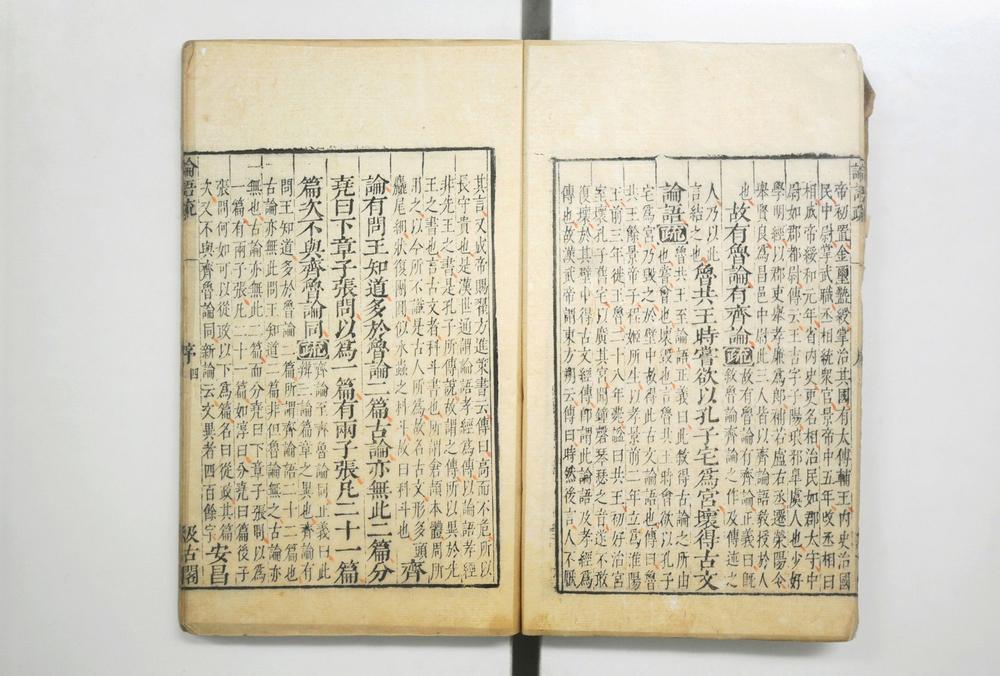 論語疏
帝初置金璽盭綬掌治其國有太傅輔王內史治國
民中尉掌武職丞相統衆官景帝中五年改丞相曰
相成帝綏和元年省內史更名相治民如郡大守中
尉如郡都尉傳云王吉字子陽琅邪皐虞人也少好
學明經以郡吏舉孝廉爲郎補右盧右丞遷榮陽令
舉賢良爲昌邑中尉此三人皆以齊論語敎授於人
也 故有魯論有齊論 疏 故有魯論有齊論正義曰旣
敘魯論齊論之作及傳述之
人乃以此
言結之也 魯共王時嘗欲以孔子宅爲宮壞得古文
論語 疏 魯共王至論語正義曰此敘得古論之所由
也嘗曾也壞毀也言魯共王時曾欲以孔子
宅爲宮乃毀之於壁中故得此古文論語也傳曰魯
共王餘景帝子程姬所生以孝景前二年立爲淮陽
王前三年徙王魯二十八年薨謚曰共王初好治宮
室壞孔子舊宅以廣其宮聞鐘磬琴瑟之音遂不敢
復壞於其壁中得古文經傳卽謂此論語及孝經爲
傳也故漢武帝謂東方朔云傳曰時然後言人不厭
其言又成帝賜翟方進策書云傳曰高而不危所以
長守貴也是漢世通謂論語孝經爲傳以論語孝經
非先王之書是孔子所傳說故謂之傳所以異於先
王之書也言古文者科斗書也所謂倉頡本體周所
用之以今所不識是古人所爲故名古文形多頭
麤尾細狀腹團圓似水蟲之科斗故曰科斗也 齊
論有問王知道多於魯論二篇古論亦無此二篇分
堯曰下章子張問以爲一篇有兩子張凡二十一篇
篇次不與齊魯論同 疏 齊論至齊魯論同正義曰此
辨三論篇章之異也齊論有
問王知道多於魯論二篇所謂齊論語二十二篇也
古論亦無此問王知道二篇非但魯論無之古論亦
無也古論亦無此二篇而分堯曰下章子張問以爲
一篇有兩子張凡二十一篇如淳曰分堯曰篇後子
張問何如可以從政以下爲篇名曰從政其篇
次又不與齊魯論同新論云文異者四百餘字 安昌
論語疏 序 四 汲古閣